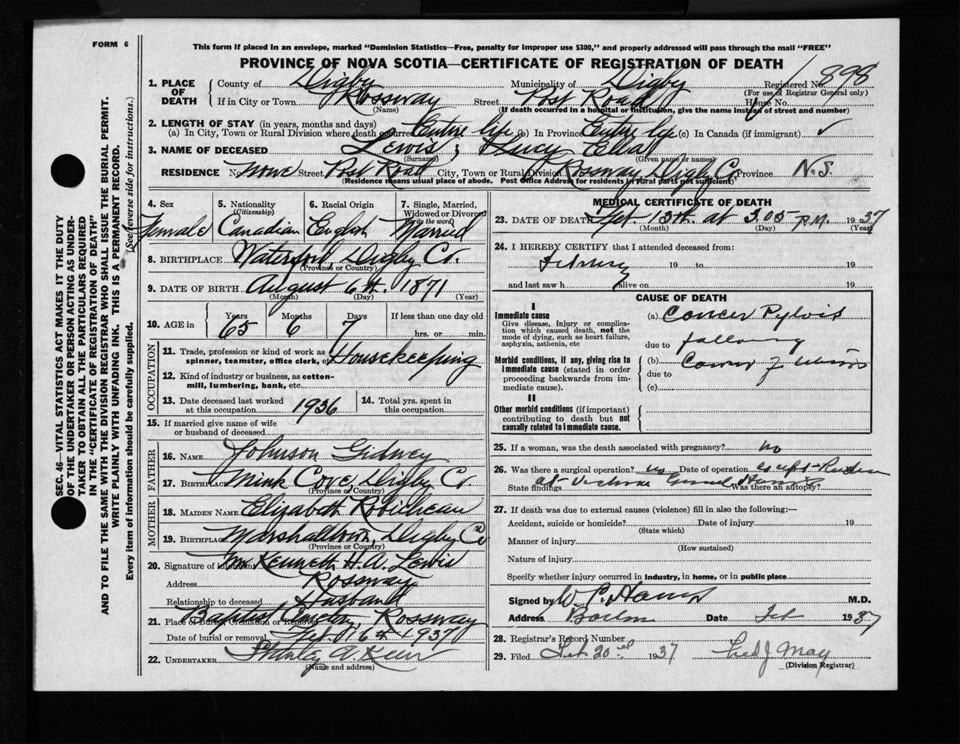 FORM 6
This form if placed in an envelope, marked "Dominion Statistics—Free, penalty for improper use $300," and properly addressed will pass through the mail "FREE"
PROVINCE OF NOVA SCOTIA—CERTIFICATE OF REGISTRATION OF DEATH
SEC. 46—VITAL STATISTICS ACT MAKES IT THE DUTY
OF THE UNDERTAKER OR PERSON ACTING AS UNDER-
TAKER TO OBTAIN ALL THE PARTICULARS REQUIRED
IN THE "CERTIFICATE OF REGISTRATION OF DEATH"
AND TO FILE THE SAME WITH THE DIVISION REGISTRAR WHO SHALL ISSUE THE BURIAL PERMIT.
WRITE PLAINLY WITH UNFADING INK. THIS IS A PERMANENT RECORD.
Every item of information should be carefully supplied. (See reverse side for instructions.)
1. PLACE OF DEATH County of Digby Municipality of Digby Registered No. 898
(For use of Registrar General only)
If in City or Town Rossway Street Post Road House No.
(Name) (If death occurred in a hospital or institution, give the name instead of street and number)
2. LENGTH OF STAY (in years, months and days)
(a) In City, Town or Rural Division where death occurred Entire life (b) In Province Entire life (c) In Canada (if immigrant) ✓
3. NAME OF DECEASED Lewis, Lucy Ella
(Surname) (Given name or names)
RESIDENCE No. None Street Post Road City, Town or Rural Division Rossway Digby Co. Province N.S.
(Residence means usual place of abode. Post Office Address for residents in rural parts not sufficient)
4. Sex 5. Nationality (Citizenship) 6. Racial Origin 7. Single, Married, Widowed or Divorced (Write the word)
Female Canadian English Married
8. BIRTHPLACE Waterford Digby Co.
(Province or Country)
9. DATE OF BIRTH August 6th 1871
(Month) (Day) (Year)
10. AGE in Years Months Days If less than one day old
65 6 7 hrs. or min.
OCCUPATION
11. Trade, profession or kind of work as spinner, teamster, office clerk, etc. Housekeeping
12. Kind of industry or business, as cotton-mill, lumbering, bank, etc.
13. Date deceased last worked at this occupation 1936 14. Total yrs. spent in this occupation
15. If married give name of wife or husband of deceased
FATHER
16. NAME Johnson Gidney
17. BIRTHPLACE Mink Cove, Digby Co.
(Province or Country)
MOTHER
18. MAIDEN NAME Elizabeth Robicheau
19. BIRTHPLACE Marshalltown, Digby Co
(Province or Country)
20. Signature of informant Mr Kenneth H.A. Lewis
Address Rossway
Relationship to deceased Husband
21. Place of Burial, Cremation or Removal Baptist Rossway
Date of burial or removal Feb. 16th 1937
22. UNDERTAKER Stanley A.
(Name and address)
MEDICAL CERTIFICATE OF DEATH
23. DATE OF DEATH Feb. 13th at 3.05 P.M. 1937
(Month) (Day) (Year)
24. I HEREBY CERTIFY that I attended deceased from:
19 to 19
and last saw h alive on 19
CAUSE OF DEATH
I
Immediate cause
Give disease, injury or complication which caused death, not the mode of dying, such as heart failure, asphyxia, asthenia, etc
(a) Cancer Pylvis
due to following
Morbid conditions, if any, giving rise to immediate cause (stated in order proceeding backwards from immediate cause).
(b) Cancer
due to
(c)
II
Other morbid conditions (if important) contributing to death but not causally related to immediate cause.
25. If a woman, was the death associated with pregnancy? no
26. Was there a surgical operation? Date of operation
State findings at Was there an autopsy?
27. If death was due to external causes (violence) fill in also the following:—
Accident, suicide or homicide? Date of injury 19
(State which)
Manner of injury
(How sustained)
Nature of injury
Specify whether injury occurred in industry, in home, or in public place
Signed by M.D.
Address Date Feb 1937
28. Registrar's Record Number
29. Filed Feb 20 1937 Fred J. May
(Division Registrar)